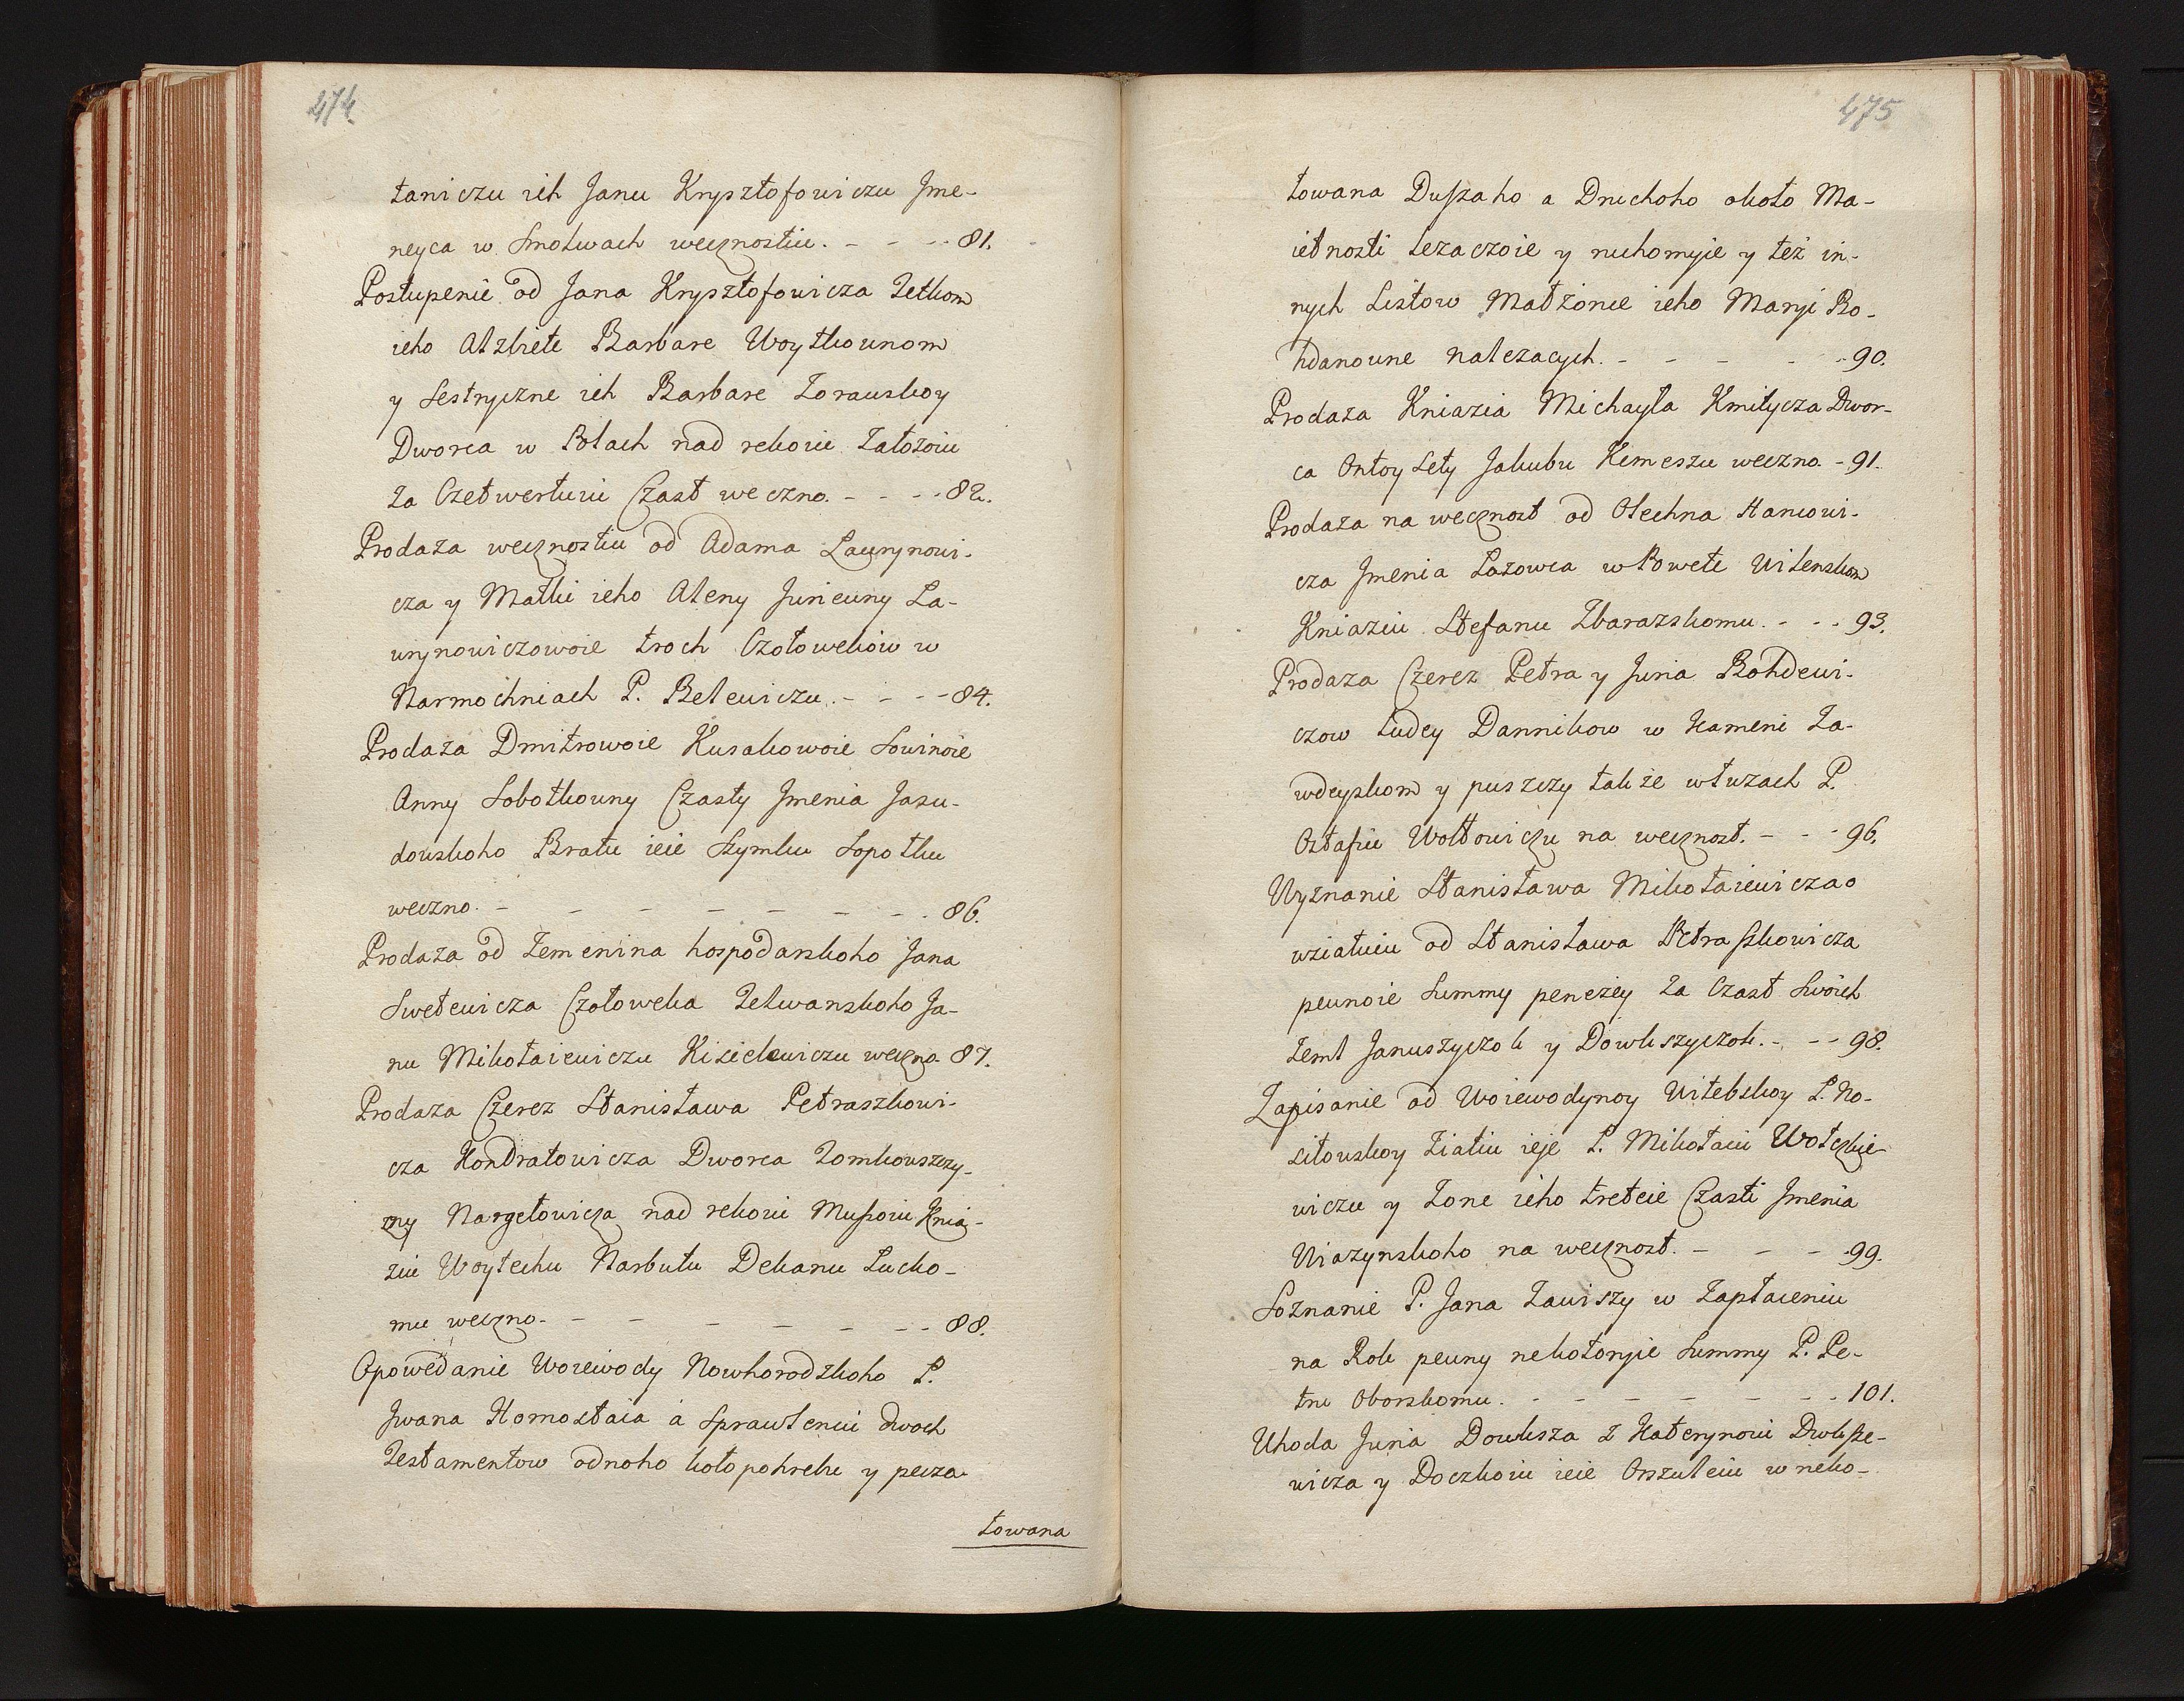 474.
taniczu ich Janu Krysztofowiczu Jme-
neyca w Smolwach wecznostiu. - - - 81.
Postupenie od Jana Krysztofowicza Tetkom
ieho Alzbiete Barbare Woytkounom
y Sestryczne ich Barbare Zorauskoy
Dworca w Polach nad rekoiu Zalozoiu
za Czetwertuiu Czast weczno. - - - 82.
Prodaza wecznostiu od Adama Laurynowi-
cza y Matki ieho Aleny Juriewny La-
urynowiczowoie troch Czolowekow w
Narmochniach P. Belewiczu. - - - 84.
Prodaza Dmitrowoie Kusakowoie Sowinoie
Anny Sobotkouny Czasty Jmenia Jasu-
douskoho Bratu ieie Szymku Sopotku
weczno. - - - - - - - 86.
Prodaza od Zemenina hospodarskoho Jana
Swetewicza Czoloweka Zelwanskoho Ja-
nu Mikolaiewiczu Kisielewiczu weczno 87.
Prodaza Czerez Stanislawa Petraszkowi-
cza Kondratowicza Dworca Zomkowszczy-
zny Nargelowicza nad rekoiu Mussoiu Knia-
ziu Woytechu Narbutu Dekanu Lucko-
mu weczno. - - - - - - - 88.
Opowedanie Woiewody Nowhorodzkoho P.
Jwana Hornostaia a Sprawleniu dwoch
Testamentow odnoho kolo pohrebu y pecza-
towana
475
towana Duszaho a Druchoho okolo Ma-
ietnosti lezaczoie y ruchomyie y też in-
nych Listow Małżonce ieho Maryi Bo-
hdanoune nalezacych. - - - - 90.
Prodaza Kniazia Michayla Kmitycza Dwor-
ca Ontoysety Jakubu Kemeszu weczno. - 91.
Prodaza na wecznost od Olechna Hancowi-
cza Jmenia Lazowca w Powete Wilenskom
Kniaziu Stefanu Zbarazskomu. - - - 93.
Prodaza Czerez Petra y Juria Bohdewi-
czow ludey Dannikow w Kameni Za-
wdeyskom y puszczy takze w tuzach P.
Ostafiu Wollowiczu na wecznost. - - - 96.
Wyznanie Stanislawa Mikolaiewicza o
wziatuiu od Stanislawa Petraszkowicza
peunoie Summy penezey za Czast Swoich
zeml Januszyczok y Dowkszyczok. - - - 98.
Zapisanie od Woiewodynoy Witebskoy P. No-
silowskoy Ziatiu ieje P. Mikolaiu Wolczkie-
wiczu y Zone ieho treteie Czasti Jmenia
Wiazynskoho na wecznost. - - - 99.
Soznanie P. Jana Zawiszy w Zaplaceniu
na Rok peuny nekotoryie Summy P. Pe-
tru Oborskomu. - - - - - - 101.
Uhoda Juria Dowksza z Katerynoiu Dwksze-
wicza y Doczkoiu ieie Orszuleiu w neko-